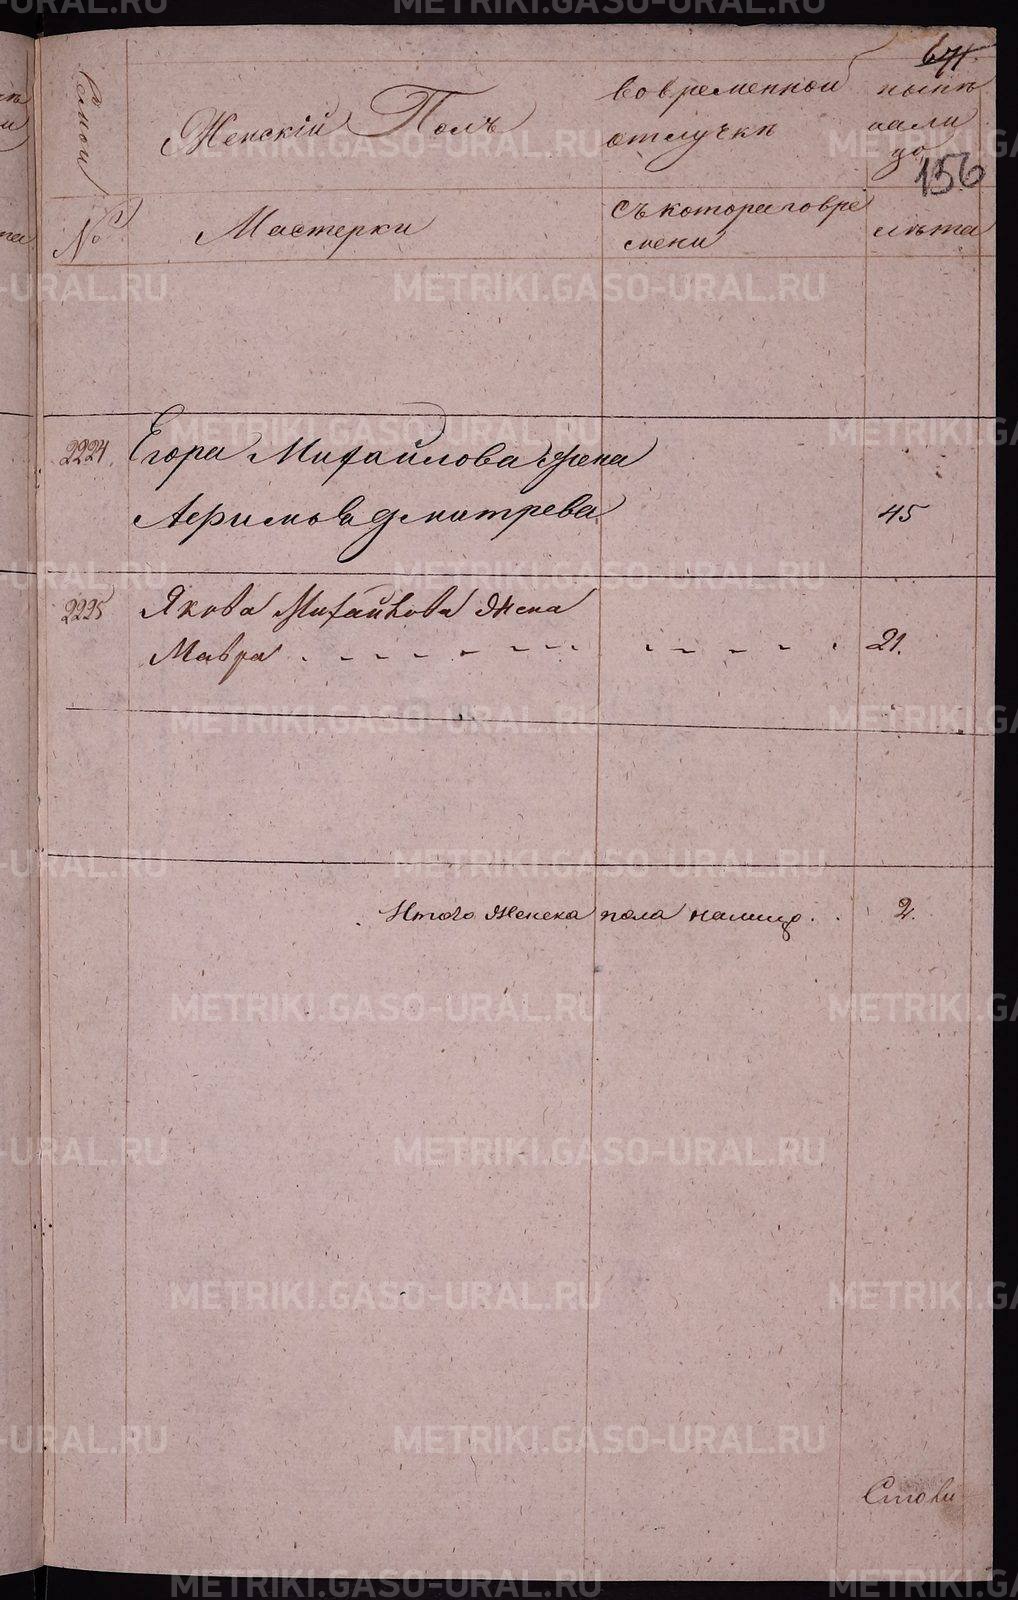 671.
Семьи
Женскій Полъ
Во временной отлучкѣ
нынѣ на ли цо
156
№
Мастерки
Съ котораго вре мени
лѣта
2224. Егора Михайлова жена
Афимья дмитрева 45
2225 Якова Михайлова жена
Мавра 21.
Итого женска пола налицо . . 2.
METRIKI.GASO-URAL.RU